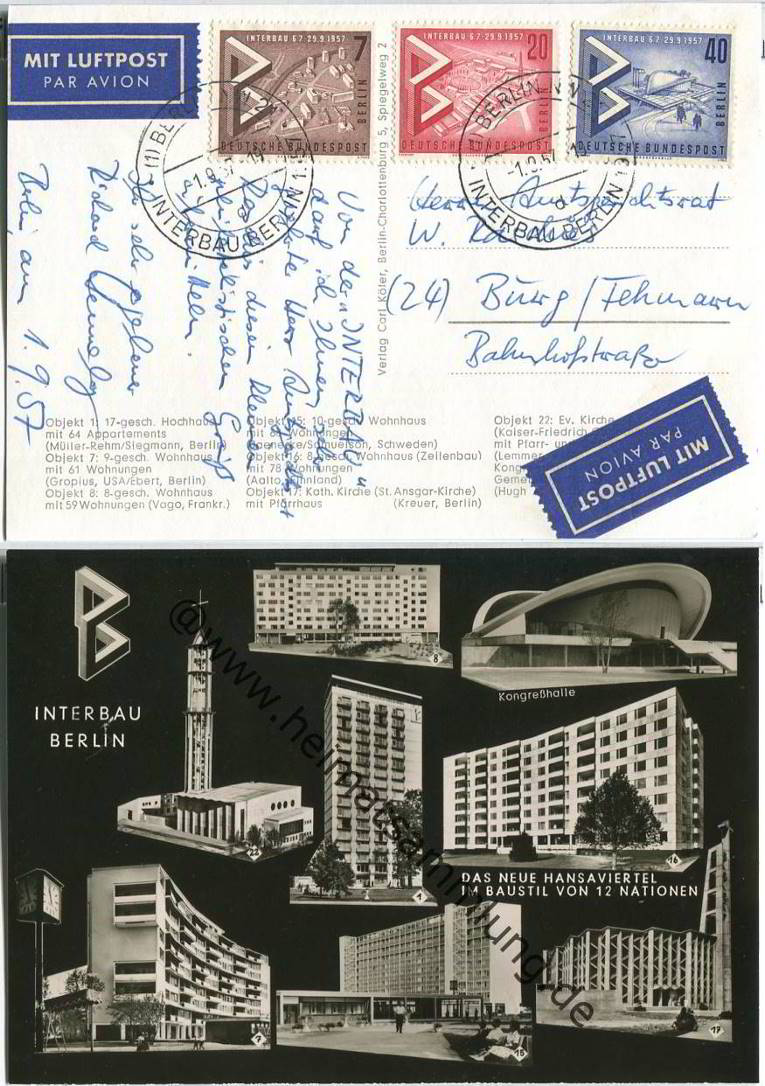 MIT LUFTPOST
PAR AVION
INTERBAU 6.7.-29.9.1957
7
BERLIN
DEUTSCHE BUNDESPOST
INTERBAU 6.7.-29.9.1957
20
BERLIN
DEUTSCHE BUNDESPOST
INTERBAU 6.7.-29.9.1957
40
BERLIN
DEUTSCHE BUNDESPOST
-1.9.57
INTERBAU BERLIN
BERLIN
-1.9.57
INTERBAU BERLIN
Von der „INTERBAU"
darf ich Ihnen, sehr
geehrter Herr
diesen kleinen
philatelistischen Gruß
übermitteln.
Ihr sehr ergebener
Richard
Berlin, am 1.9.57
Verlag Carl Köler, Berlin-Charlottenburg 5, Spiegelweg 2
Herrn Amtsgerichtsrat
W.
(24) Burg / Fehmarn
Bahnhofstraße
Objekt 1: 17-gesch. Hochhaus
mit 64 Appartements
(Müller-Rehm/Siegmann, Berlin)
Objekt 7: 9-gesch. Wohnhaus
mit 61 Wohnungen
(Gropius, USA/Ebert, Berlin)
Objekt 8: 8-gesch. Wohnhaus
mit 59 Wohnungen (Vago, Frankr.)
Objekt 15: 10-gesch. Wohnhaus
mit 68 Wohnungen
(Jaenecke/Samuelson, Schweden)
Objekt 16: 8-gesch. Wohnhaus (Zeilenbau)
mit 78 Wohnungen
(Aalto, Finnland)
Objekt 17: Kath. Kirche (St. Ansgar-Kirche)
mit Pfarrhaus (Kreuer, Berlin)
Objekt 22: Ev. Kirche
(Kaiser-Friedrich
mit Pfarr- und
(Lemmer
Kong
Geme
(Hugh
MIT LUFTPOST
PAR AVION
INTERBAU
BERLIN
8
Kongreßhalle
22
1
16
DAS NEUE HANSAVIERTEL
IM BAUSTIL VON 12 NATIONEN
7
15
17
@www.heimatsammlung.de